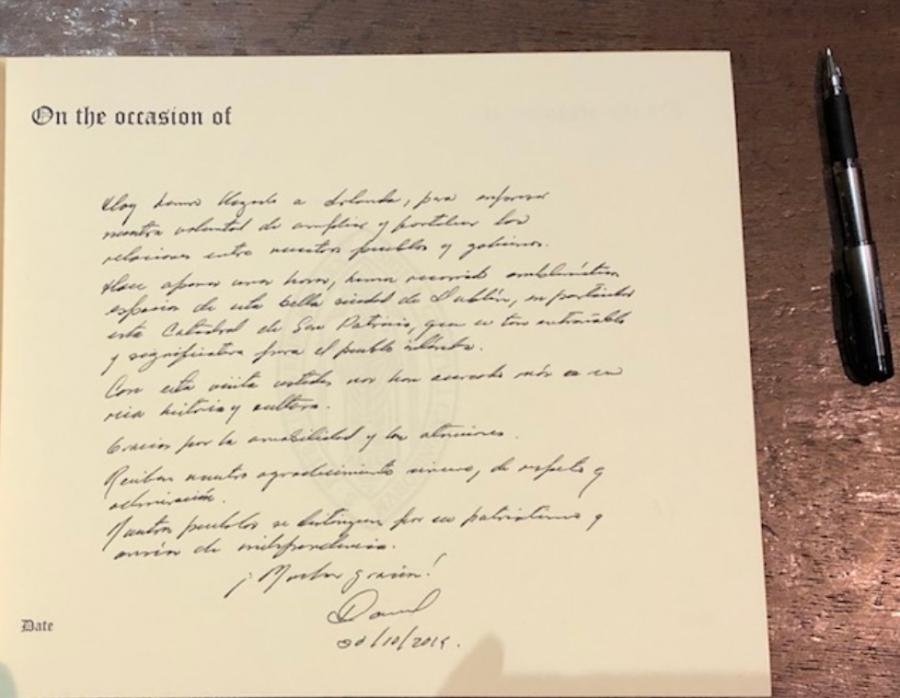 On the occasion of
Hoy hemos llegado a Irlanda, para expresar
nuestra voluntad de ampliar y fortalecer las
relaciones entre nuestros pueblos y gobiernos.
Hace apenas unas horas, hemos recorrido emblemáticos
espacios de esta bella ciudad de Dublín, en particular
esta Catedral de San Patricio, que es tan entrañable
y significativa para el pueblo irlandés.
Con esta visita ustedes nos han acercado más a su
rica historia y cultura.
Gracias por la amabilidad y las atenciones.
Reciban nuestro agradecimiento sincero, de respeto y
admiración.
Nuestros pueblos se distinguen por su patriotismo y
de independencia.
¡Muchas gracias!
/10/2019.
Date